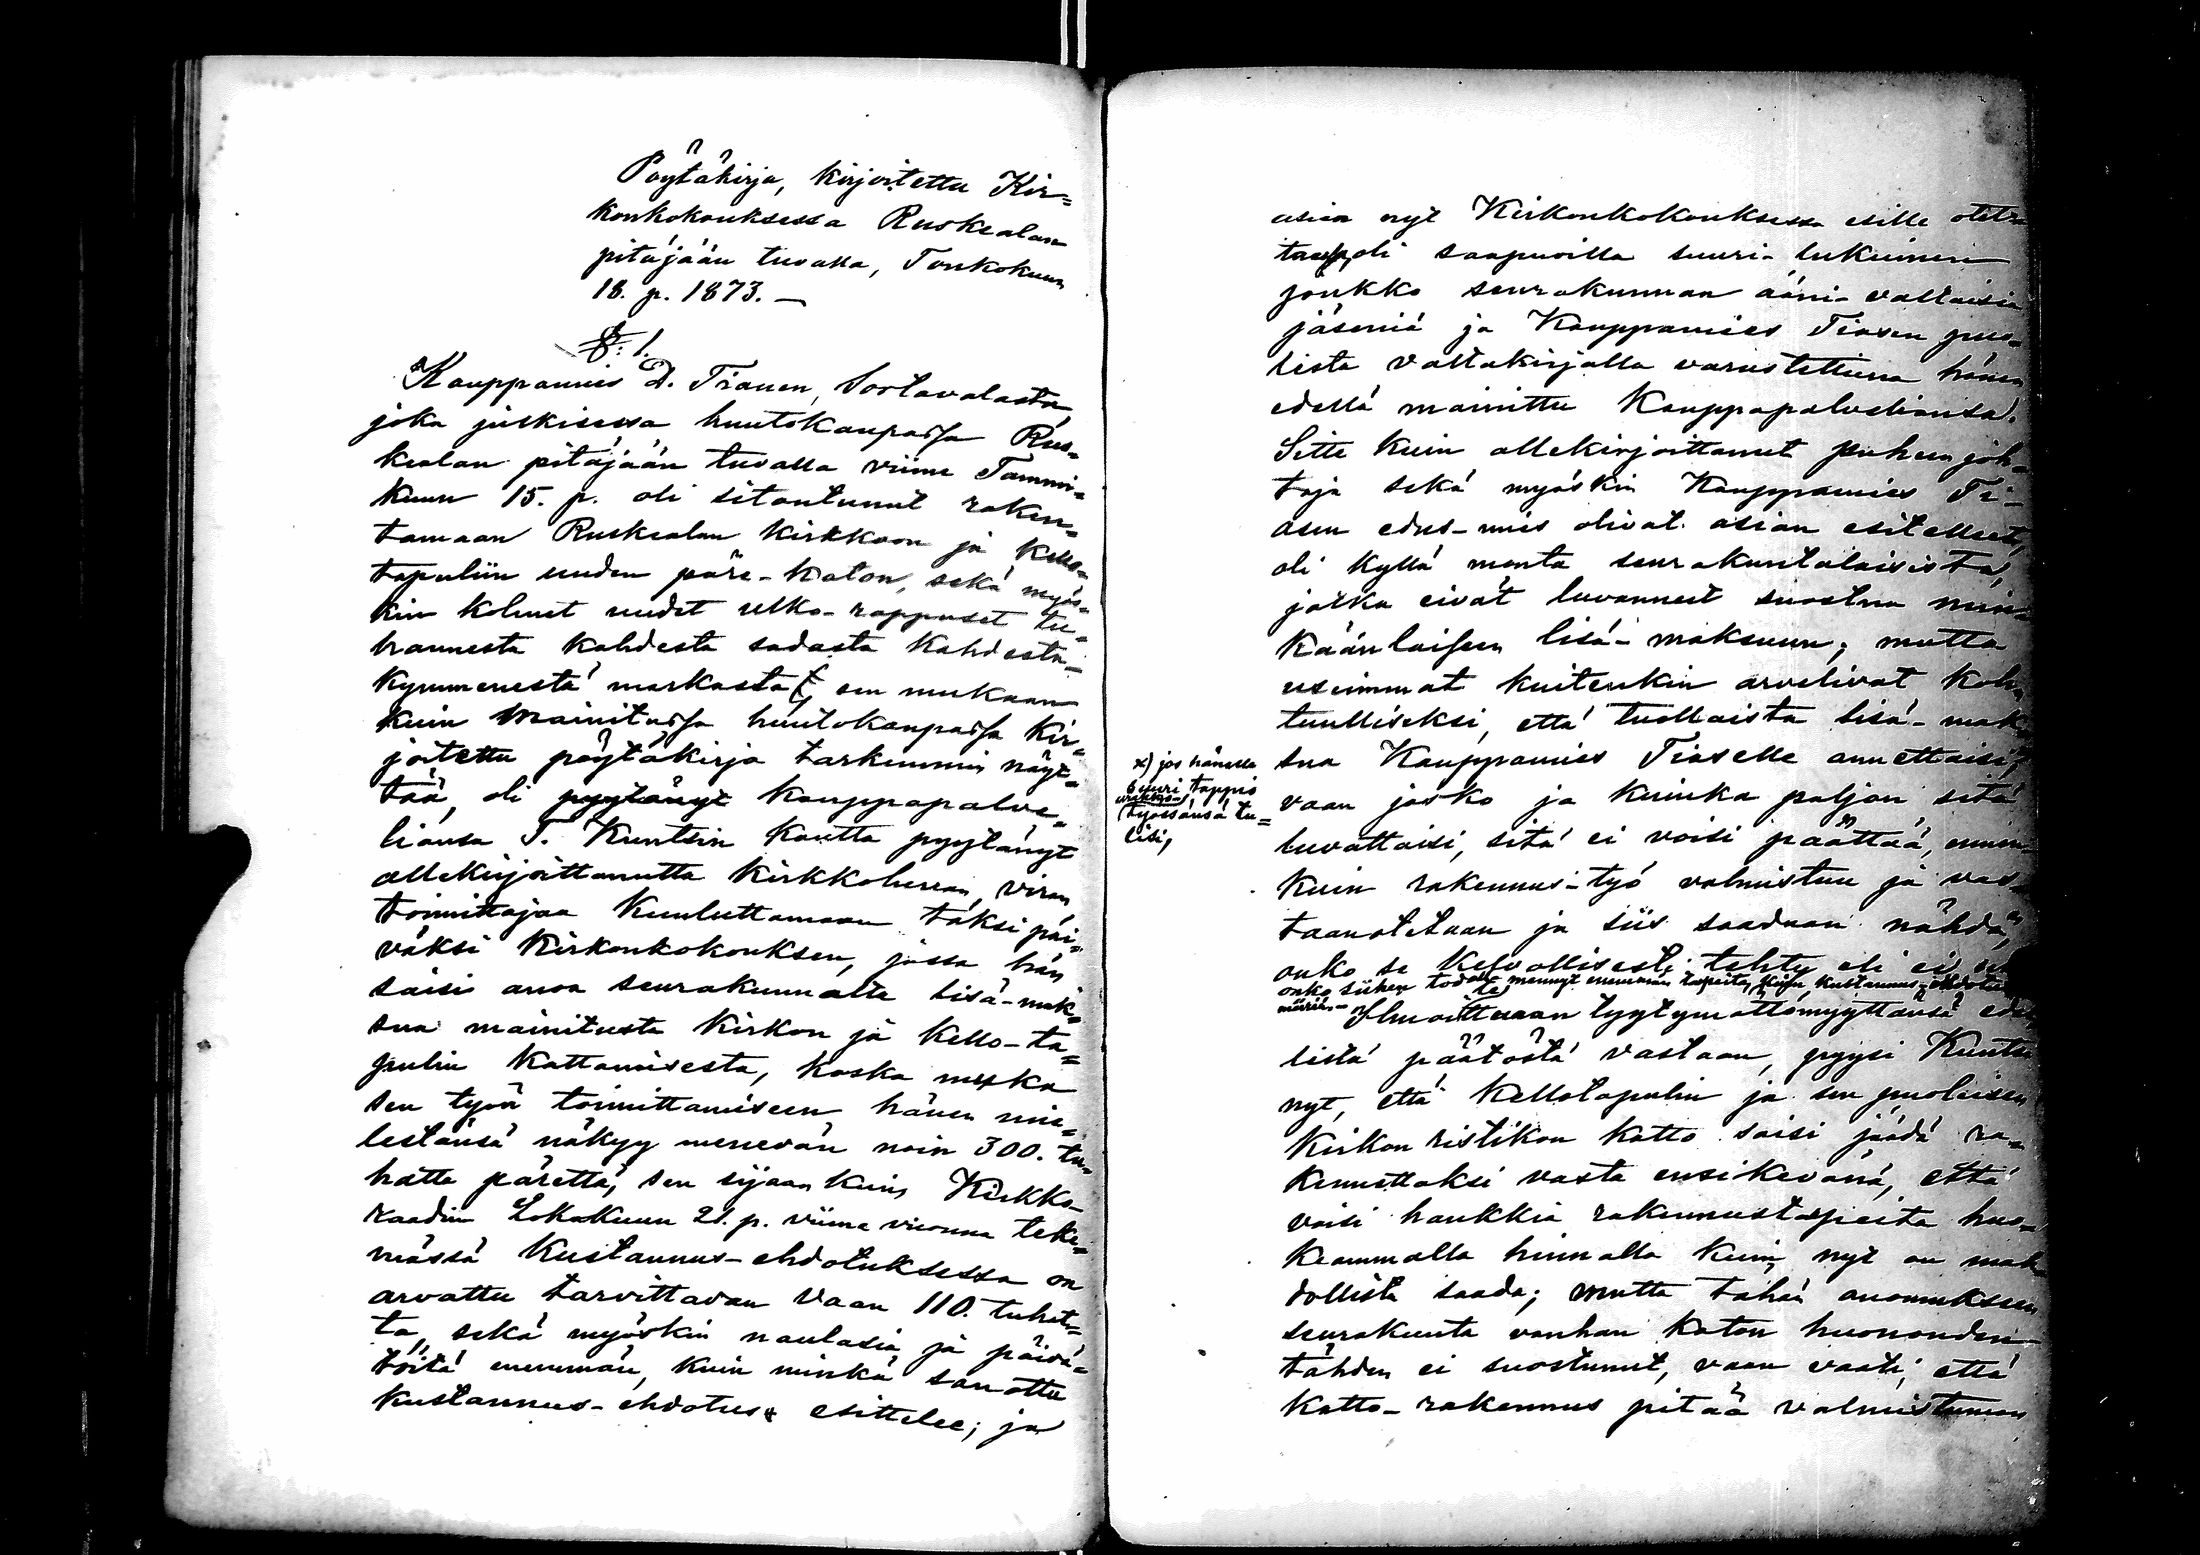 Pöytäkirja, kirjoitettu Kir=
konkokouksessa Ruskealan
pitäjään tuvalla, Toukokuun
18. p. 1873. —
§: 1.
Kauppamies D. Tianen, Sortavalasta,
joka julkisessa huutokaupassa Rus=
kealan pitäjään tuvalla viime Tammi=
kuun 15. p. oli sitoutunut raken=
tamaan Ruskealan kirkkoon ja kello=
tapuliin uuden päre-katon, sekä myös=
kin kolmet uudet ulko-rappuset tu=
hannesta kahdesta sadasta kahdesta=
kymmenestä markasta, sen mukaan
kuin mainitussa huutokaupassa kir=
joitettu pöytäkirja tarkemmin näyt=
tää, oli pyytänyt kauppapalve=
liansa T. Kuntsin kautta pyytänyt
allekirjoittanutta kirkkoherran viran
toimittajaa kuuluttamaan täksi päi=
väksi Kirkonkokouksen, jossa hän
saisi anoa seurakunnalta lisä-mak=
sua mainitusta kirkon ja kello-ta=
pulin kattamisesta, koska
sen työn toimittamiseen hänen mie=
lestänsä näkyy menevän noin 300. tu=
hatta pärettä, sen sijaan kuin Kirkko-
raadin Lokakuun 21. p. viime vuonna teke=
mässä kustannus-ehdotuksessa on
arvattu tarvittavan vaan 110. tuhat=
ta, sekä myöskin naulasia ja päivä=
töitä enemmän, kuin minkä sanottu
kustannus-ehdotus esittelee; ja
asian nyt Kirkonkokouksessa esille otet=
taessa, oli saapuvilla suuri-lukuinen
joukko seurakunnan ääni-valtaisia
jäseniä ja Kauppamies Tiasen puo=
lista valtakirjalla varustettuna hänen
edellä mainittu kauppapalveliansa.
Sitte kuin allekirjoittanut puheenjoh=
taja sekä myöskin Kauppamies Ti=
asen edus-mies olivat asian esitelleet,
oli kyllä monta seurakuntalaisista,
jotka eivät luvanneet suostua min=
käänlaiseen lisä-maksuun; mutta
useimmat kuitenkin arvelivat koh=
tuulliseksi, että tuollaista lisä-mak=
sua Kauppamies Tiaselle annettaisi,
x) jos hänelle
suuri tappio
urakka=
työssänsä tu=
lisi,
vaan josko ja kuinka paljon sitä
luvattaisi, sitä ei voisi päättää, ennen
kuin rakennus-työ valmistuu ja vas=
taanotetaan ja siis saadaan nähdä,
onko se kelvollisesti tehty eli ei
onko siihen todella mennyt enemmän tarpeita, kuin kustannus-ehdotus
määrää. — Ilmoittaen tyytymättömyyttänsä edel=
listä päätöstä vastaan, pyysi Kuntsi
nyt, että kellotapulin ja sen puoleisen
kirkon ristikon katto saisi jäädä ra=
kennettaksi vasta ensi keväänä, että
voisi hankkia rakennustarpeita huo=
keammalla hinnalla kuin nyt on mah=
dollista saada; mutta tähän anomukseen
seurakunta vanhan katon huonouden
tähden ei suostunut, vaan vaati, että
katto-rakennus pitää valmistuman